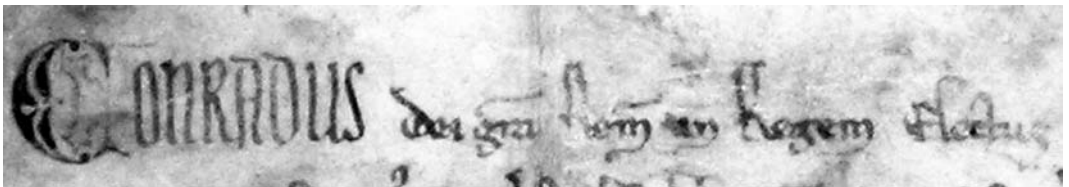 CONRADUS dei gr̄a Rom̄ in Regem Electus